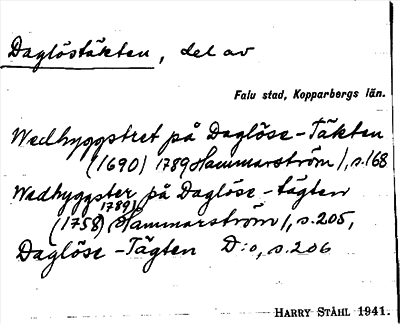 Daglöstäkten, del av
Falu stad, Kopparbergs län.
Wedhyggstret på Daglöse-Täkten
(1690) 1789 Hammarström 1, s.168
Wedhyggster på Daglöse-tägten
(1758) 1789 Hammarström 1, s.205,
Daglöse-Tägten D:o, s.206
HARRY STÅHL 1941.